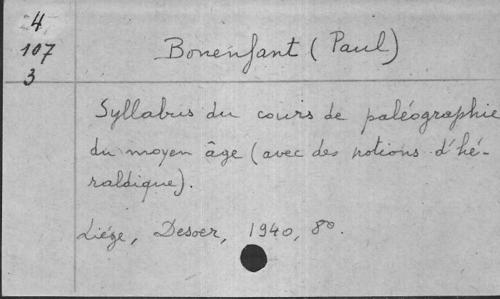 4
107
3
Bonenfant (Paul)
Syllabus du cours de paléographie
du moyen âge (avec des notions d'hé-
raldique).
Liége, Desoer, 1940, 8°.